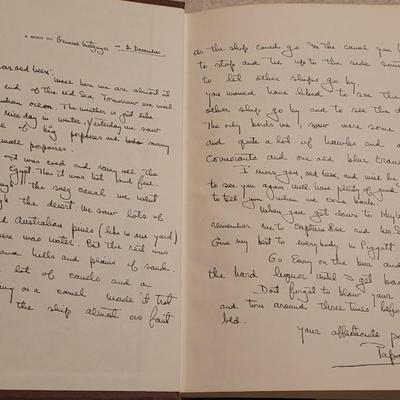 A BORD DU General Metzinger — 2 December
Dear old Mex:
Well here we are almost at
end of the red Sea. Tomorrow we will
Indian ocean. The weather is just like
nice day in winter. Yesterday we saw
of big porpoises and many
small porpoises.
it was cold and rainy all the
Egypt. Then it was hot and fine.
the suez canal we went
the desert. We saw lots of
and Australian pines (like in our yard)
there was water. But the rest was
and hills and plains of sand.
lot of camels and a
on a camel made it trot
the ship almost as fast
as the ship could go. In the canal you
to stop and tie up to the side some
to let other ships go by.
you would have liked to see the
other ship go by and to see the
The only birds we saw were some
and quite a lot of hawks and a
Cormorants and one old blue Crane.
I miss you, old mex, and will be
to see you again. Will have plenty of good
to tell you when we come back.
When you get down to Key
remember me to Captain Bra and
Give my best to everybody in Piggott.
Go easy on the beer and
the hard liquor until I get back
Dont forget to blow your
and turn around three times before
bed.
your affectionate
Papa